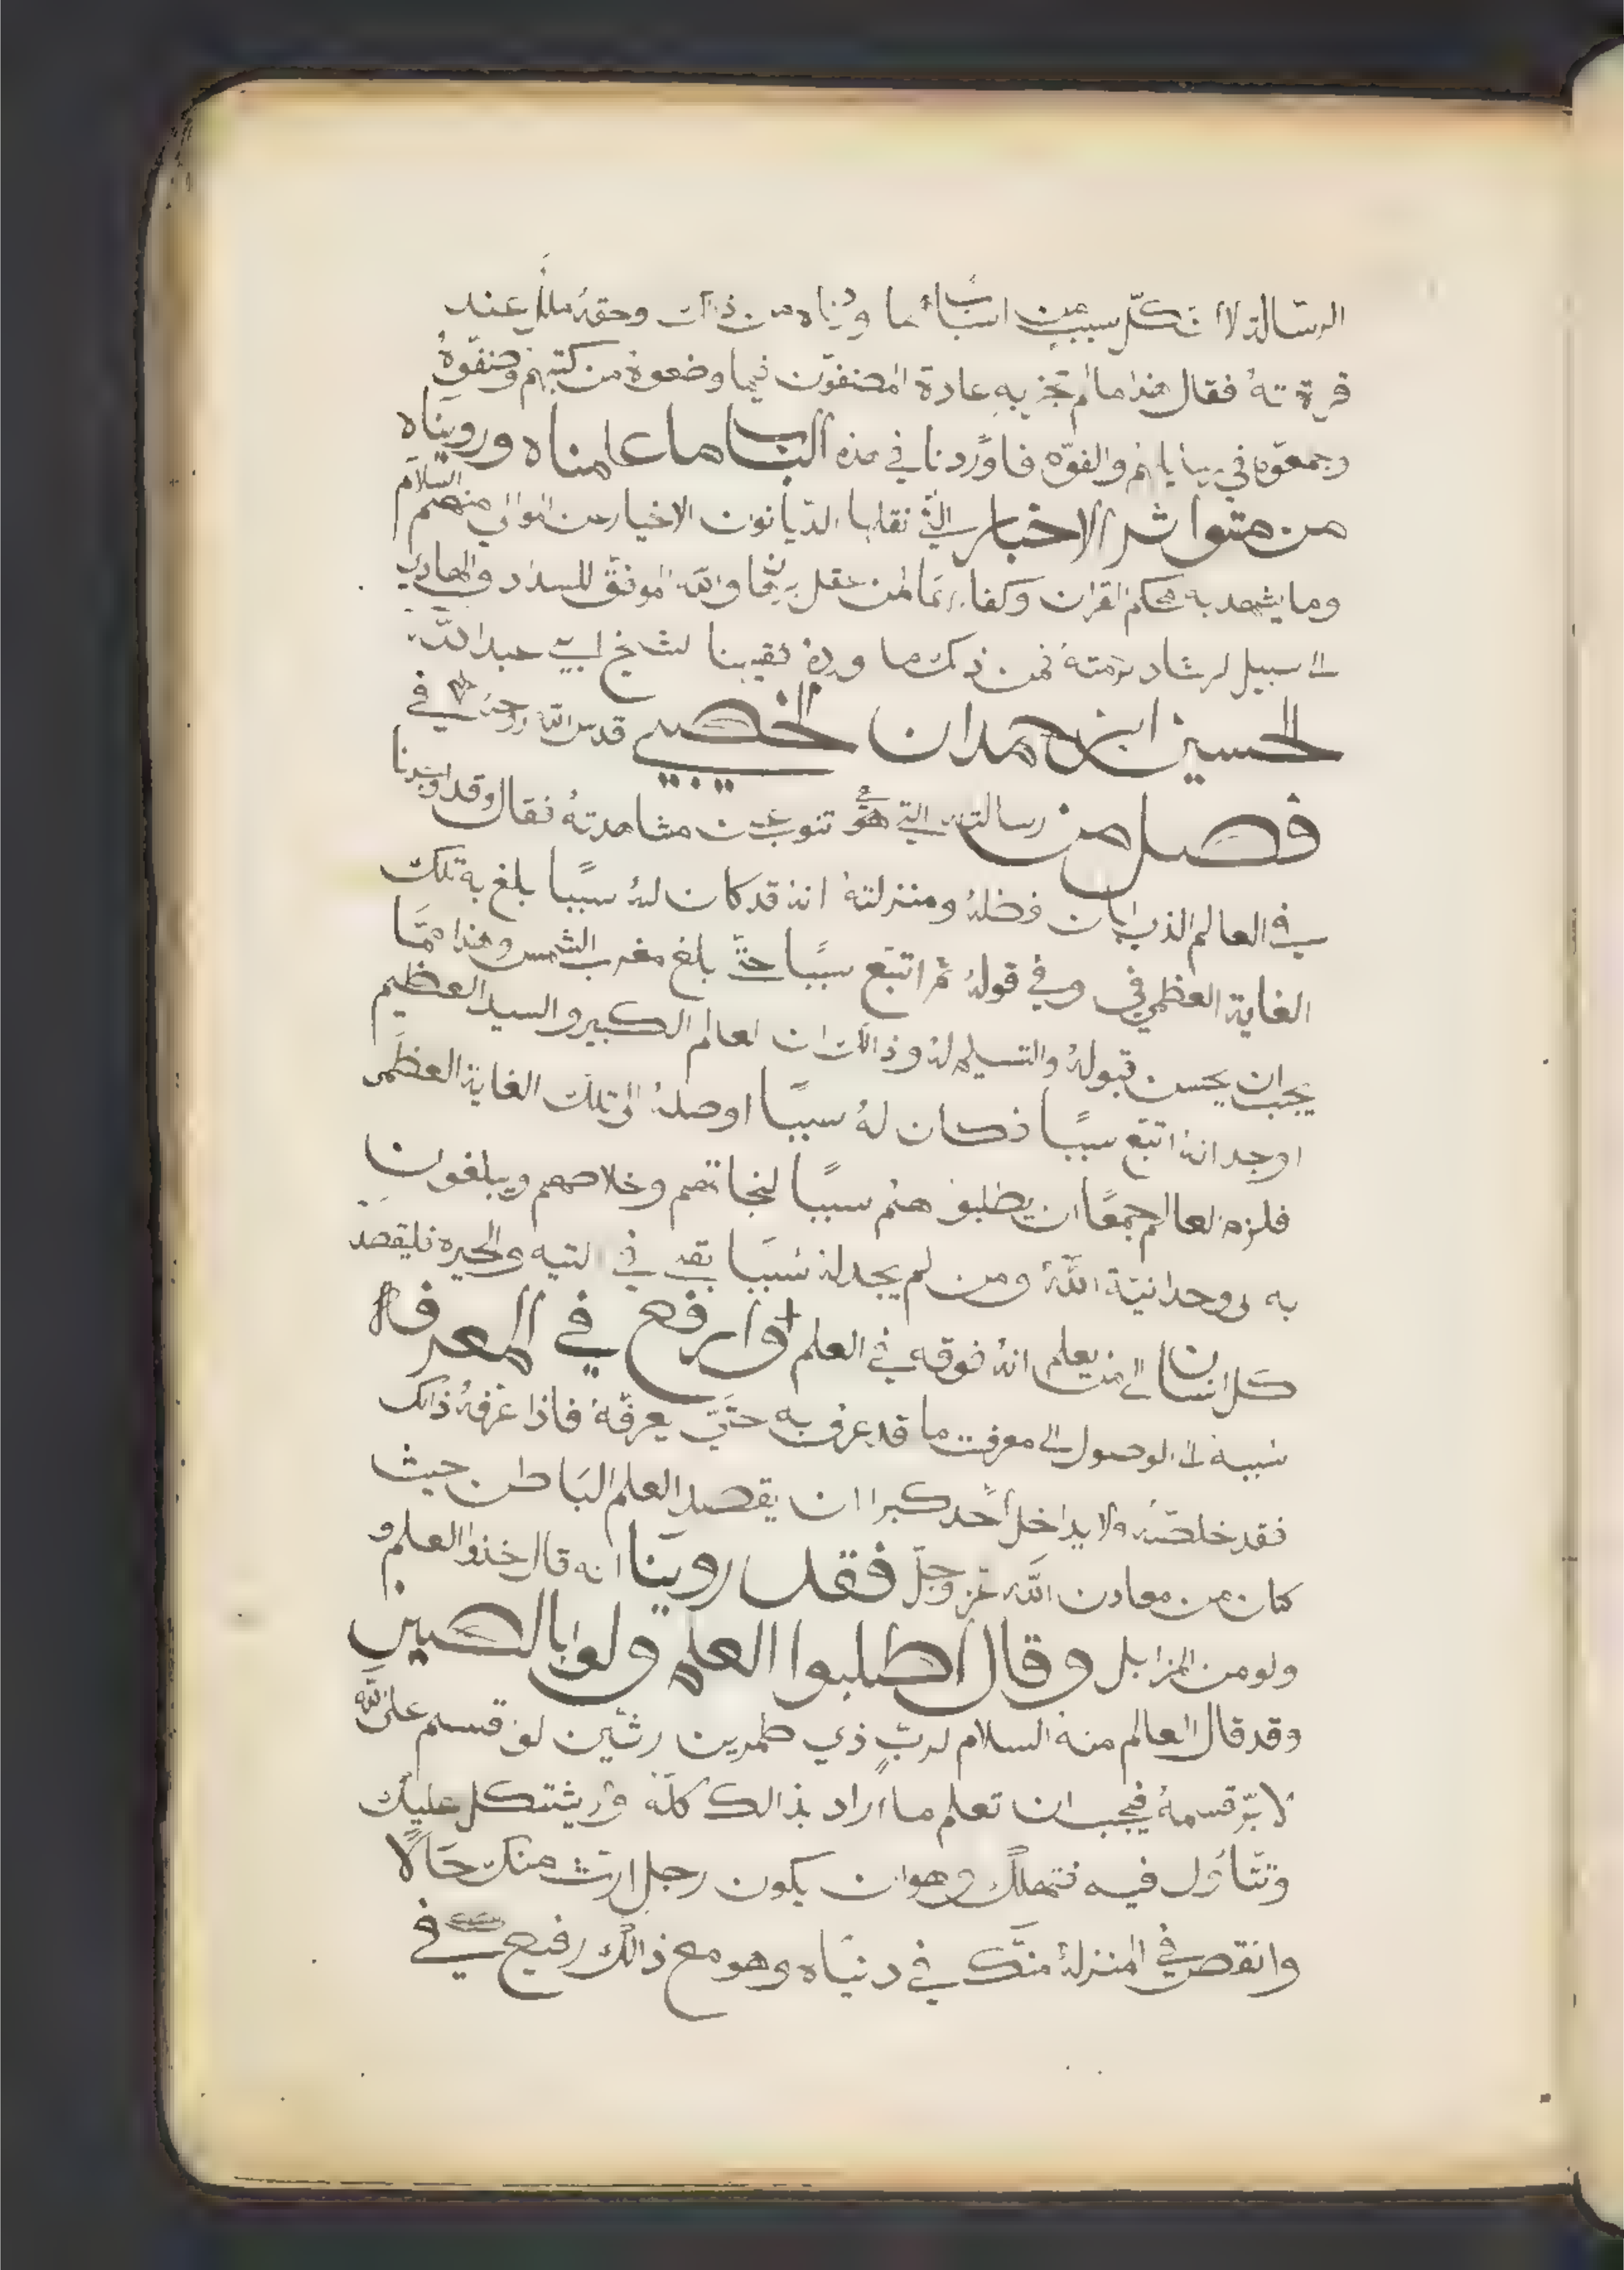 الرسالة لا تكل سبب من اسباب ما من ذالك وحقه عند
فقال هذا ما لم تجز به عادة المصنفون فيما وضعوة من كتبهم وصنفوهُ
وجمعوه في والفوّه فاوردنا في هذه الباب ما علمناه ورويناه
من متواتر الاخبار التي نقلها الديانون الاخيار عن الموالي منهم السلام
وما يشهد به محكم القران وكفا لمن عقل والله الموفق للسداد والهادي
الى سبيل الرشاد برحمته فمن ذلك ما ورده فقيهنا الشيخ ابي عبدالله
الحسين ابن حمدان الخصيبي قدس الله روحه في
فصل من رسالته التي هي تنوب عن مشاهدتهُ فقال وقد اوجدنا
في العالم الذي ابان فظلهُ ومنزلتهُ انه قد كان لهُ سببًا بلغ به تلك
الغاية العظمى في وفي قولهُ ثم اتبع سببًا حتّى بلغ مغرب الشمس وهذا ممّا
يجب ان يحسن قبولهُ والتسليم لهُ وذالك ان العالم الكبير والسيد العظيم
اوجد انهُ اتبع سببًا فكان لهُ سببًا اوصلهُ الى تلك الغاية العظمى
فلزم العالم جمعًا ان يطلبو هم سببًا لنجاتهم وخلاصهم ويبلغون
به وحدانيّة اللهُ ومن لم يجد له سببًا بقي في التيه والحيره فليقصد
كل انسان الى من يعلم انهُ فوقه في العلم وارفع في المعرفة
سببه الى الوصول الى معرفت ما قد عرف به حتّى يعرفهُ فاذا عرفهُ ذالك
فقد خلصهُ ولا يداخل أحد كبرا ان يقصد العلم الباطن حيث
كان من معادن الله عز وجل فقد روينا انه قال خذوا العلم و
ولو من المزابل وقال اطلبوا العلم ولو بالصين
وقد قال العالم منهُ السلام لربّ ذي طمرين رثّين لو قسم على الله
لابرّ قسمهُ فيجب ان تعلم ما اراد بذالك كلّهُ ولا يشتكل عليك
وتتأول فيه فتهلك وهو ان يكون رجل ارث منك حالًا
وانقص في المنزلهُ منك في دنياه وهو مع ذالك رفيع في